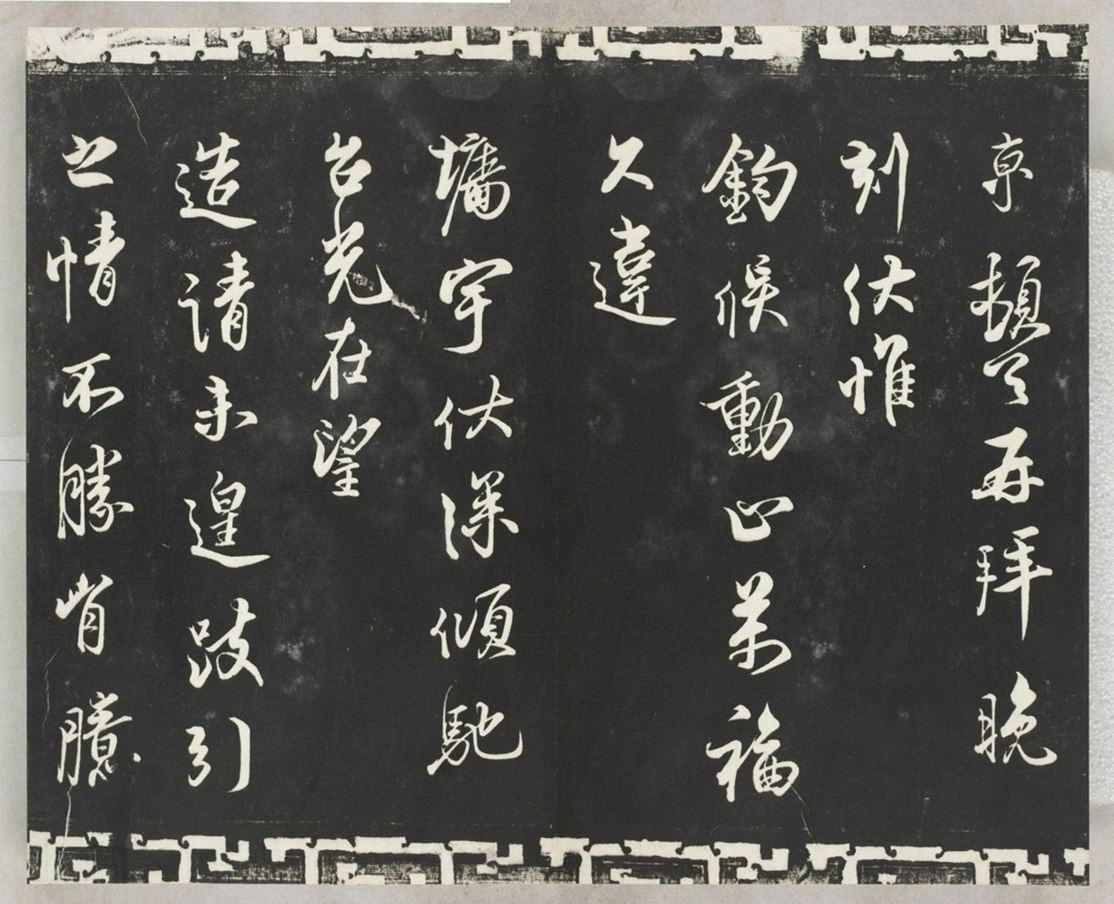 京頓首再拜晚
刻伏惟
鈞候動止萬福
久違
墉宇伏深傾馳
台光在望
造請未遑跂引
之情不勝胷臆